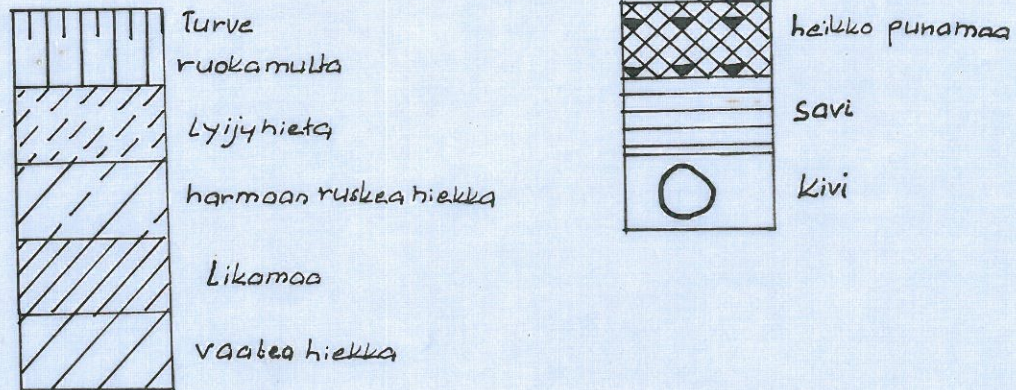 Turve
ruokamulta
Lyijyhieta
harmaan ruskea hiekka
Likamaa
vaalea hiekka
heikko punamaa
savi
kivi